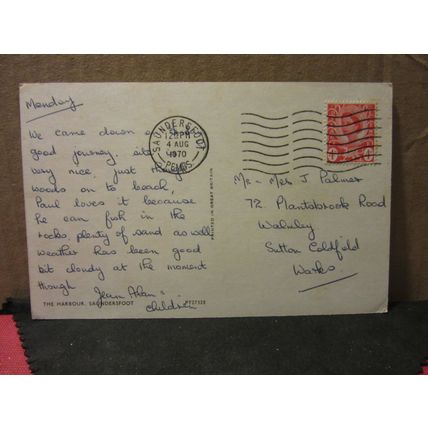 Monday
We came down
good journey. site
very nice, just
woods on to beach,
Paul loves it because
he can fish in the
rocks, plenty of sand as well
weather has been good
bit cloudy at the moment
though
Jean Alan &
children
THE HARBOUR, SAUNDERSFOOT
PT27325
PRINTED IN GREAT BRITAIN
SAUNDERSFOOT
12 PM
4 AUG
1970
PEMBS
Mr & Mrs J Palmer
72 Plantsbrook Road
Walmley
Sutton Coldfield
Warks